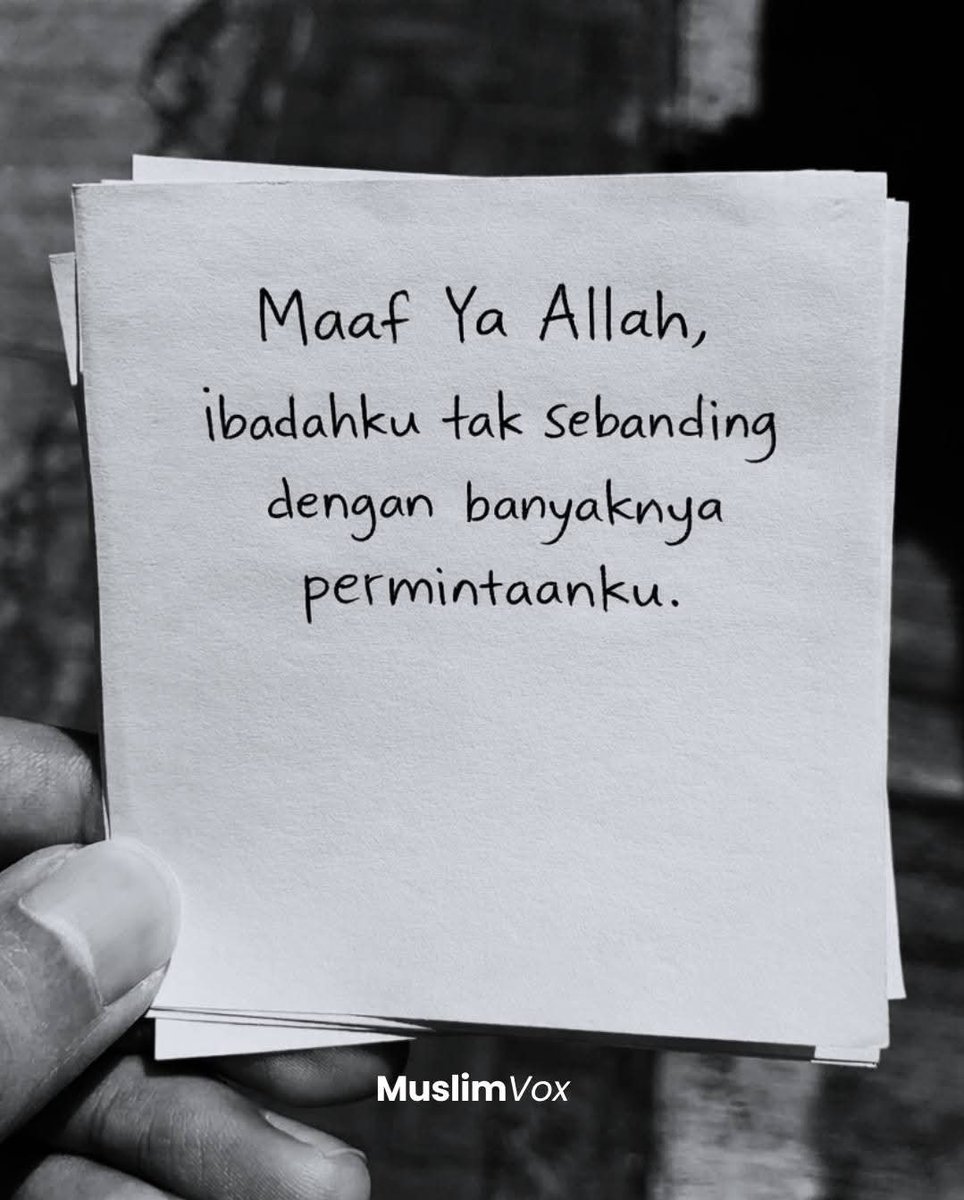 Maaf Ya Allah,
ibadahku tak sebanding
dengan banyaknya
permintaanku.
MuslimVox